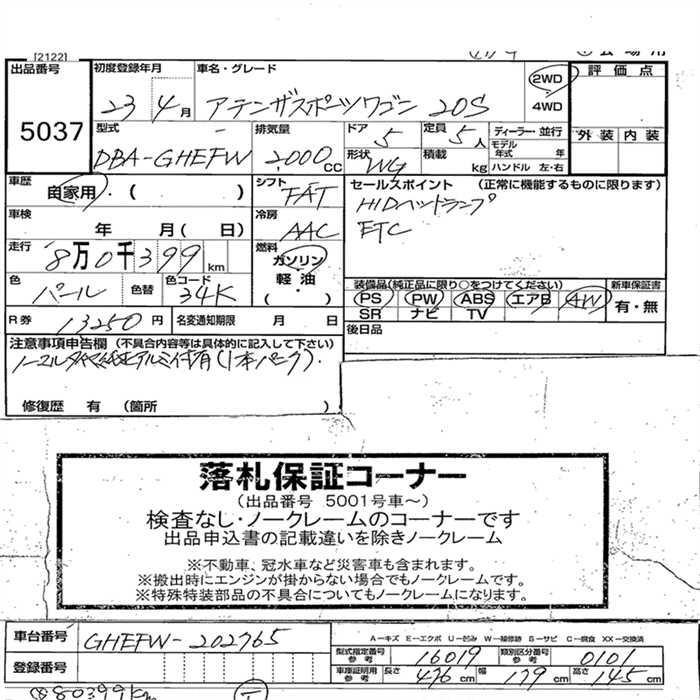 [2122]
出品番号 初度登録年月 車名・グレード 2WD 評価点
5037 23 4月 アテンザスポーツワゴン 20S 4WD
型式 排気量 ドア 定員 ディーラー・並行 外装 内装
DBA-GHEFW 2000CC 5 5人 モデル年式 年
形状 WG 積載 kg ハンドル 左・右
車歴 自家用・( ) シフト FAT セールスポイント (正常に機能するものに限ります)
車検 年 月(日) 冷房 AAC HIDヘッドランプ
走行 8万0千399km 燃料 ガソリン・軽油・( ) ETC
色 パール 色替 色コード 34K 装備品(純正品に限り○をつけてください) 新車保証書
PS PW ABS エアB AW 有・無
SR ナビ TV
R券 13250円 名変通知期限 月 日 後日品
注意事項申告欄 (不具合内容等は具体的に記入して下さい)
ノーマルタイヤ純正アルミ付有(1本パンク).
修復歴 有 (箇所 )
落札保証コーナー
(出品番号 5001号車~)
検査なし・ノークレームのコーナーです
出品申込書の記載違いを除きノークレーム
※不動車、冠水車など災害車も含まれます。
※搬出時にエンジンが掛からない場合でもノークレームです。
※特殊特装部品の不具合についてもノークレームになります。
車台番号 GHEFW-202765 A-キズ E-エクボ U-凹み W-補修跡 S-サビ C-腐食 XX-交換済
型式指定番号参考 16019 類別区分番号参考 0101
登録番号 車庫証明用参考 長さ 476cm 幅 179cm 高さ 145cm
80399km